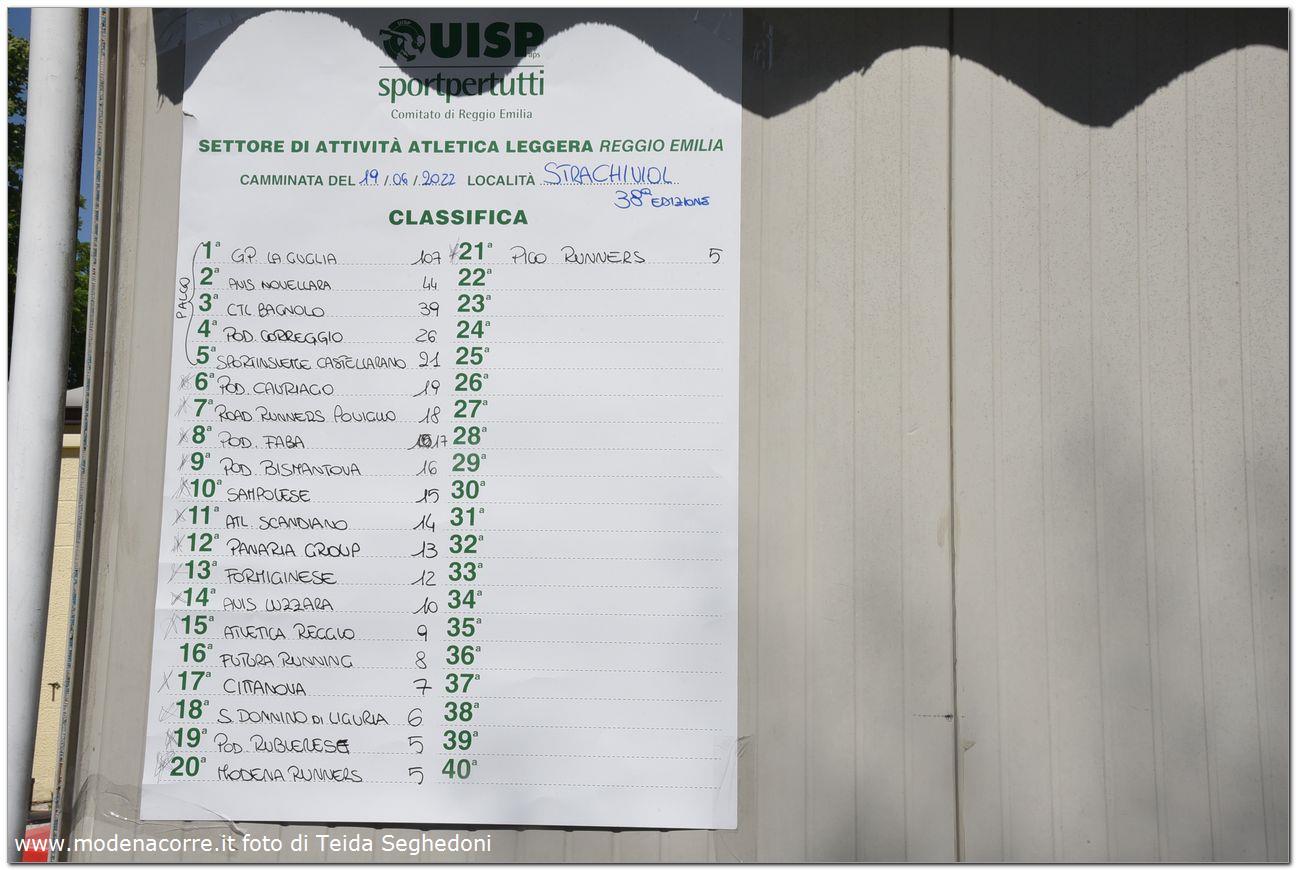 UISP
aps
sportpertutti
Comitato di Reggio Emilia
SETTORE DI ATTIVITÀ ATLETICA LEGGERA REGGIO EMILIA
CAMMINATA DEL 19/06/2022 LOCALITÀ STRACHIVIOL
38ª EDIZIONE
CLASSIFICA
PALCO
1ª G.P. LA GUGLIA 107
2ª AVIS NOVELLARA 44
3ª CTL BAGNOLO 39
4ª POD. CORREGGIO 26
5ª SPORTINSIEME CASTELLARANO 21
6ª POD. CAVRIAGO 19
7ª ROAD RUNNERS POVIGLIO 18
8ª POD. FABA 17
9ª POD. BISMANTOVA 16
10ª SAMPOLESE 15
11ª ATL. SCANDIANO 14
12ª PANARIA GROUP 13
13ª FORMIGINESE 12
14ª AVIS LUZZARA 10
15ª ATLETICA REGGIO 9
16ª FUTURA RUNNING 8
17ª CITTANOVA 7
18ª S. DONNINO DI LIGURIA 6
19ª POD. RUBIERESE 5
20ª MODENA RUNNERS 5
21ª PICO RUNNERS 5
22ª
23ª
24ª
25ª
26ª
27ª
28ª
29ª
30ª
31ª
32ª
33ª
34ª
35ª
36ª
37ª
38ª
39ª
40ª
www.modenacorre.it foto di Teida Seghedoni